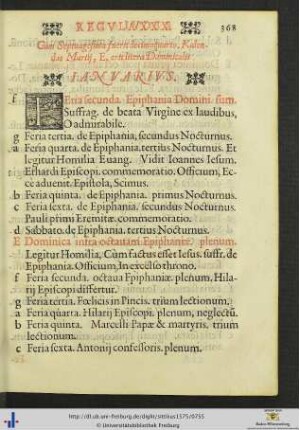 REGVLA XXXI. 368
Cum Septuagesima fuerit decimoquarto, Kalen-
das Martij, E, erit litera Dominicalis
IANVARIVS.
f FEria secunda. Epiphania Domini. sum.
Suffrag. de beata Virgine ex laudibus,
O admirabile.
g Feria tertia. de Epiphania, secundus Nocturnus.
a Feria quarta. de Epiphania. tertius Nocturnus. Et
legitur Homilia Euang. Vidit Ioannes Iesum.
Erhardi Episcopi. commemoratio. Officium, Ec-
ce aduenit. Epistola, Scimus.
b Feria quinta. de Epiphania. primus Nocturnus.
c Feria sexta. de Epiphania. secundus Nocturnus.
Pauli primi Eremitæ. commemoratio.
d Sabbato. de Epiphania. tertius Nocturnus.
E Dominica infra octauam Epiphaniæ. plenum.
Legitur Homilia, Cum factus esset Iesus. suffr. de
Epiphania. Officium, In excelso throno.
f Feria secunda. octaua Epiphaniæ. plenum, Hila-
rij Episcopi differtur.
g Feria tertia. Fœlicis in Pincis. trium lectionum,
a Feria quarta. Hilarij Episcopi. plenum, neglectũ.
b Feria quinta. Marcelli Papæ & martyris, trium
lectionum.
c Feria sexta. Antonij confessoris. plenum.
http://dl.ub.uni-freiburg.de/diglit/statius1575/0755
© Universitätsbibliothek Freiburg